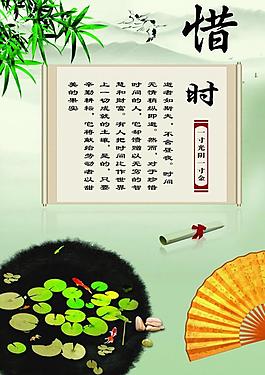 惜时
一寸光阴一寸金
逝者如斯夫，不舍昼夜。时间
无情稍纵即逝。然而，对于珍惜
时间的人，它却馈赠以无穷的智
慧和财富。有人把时间比作世界
上一切成就的土壤，是的，只要
辛勤耕耘，它将献给劳动者以甜
美的果实